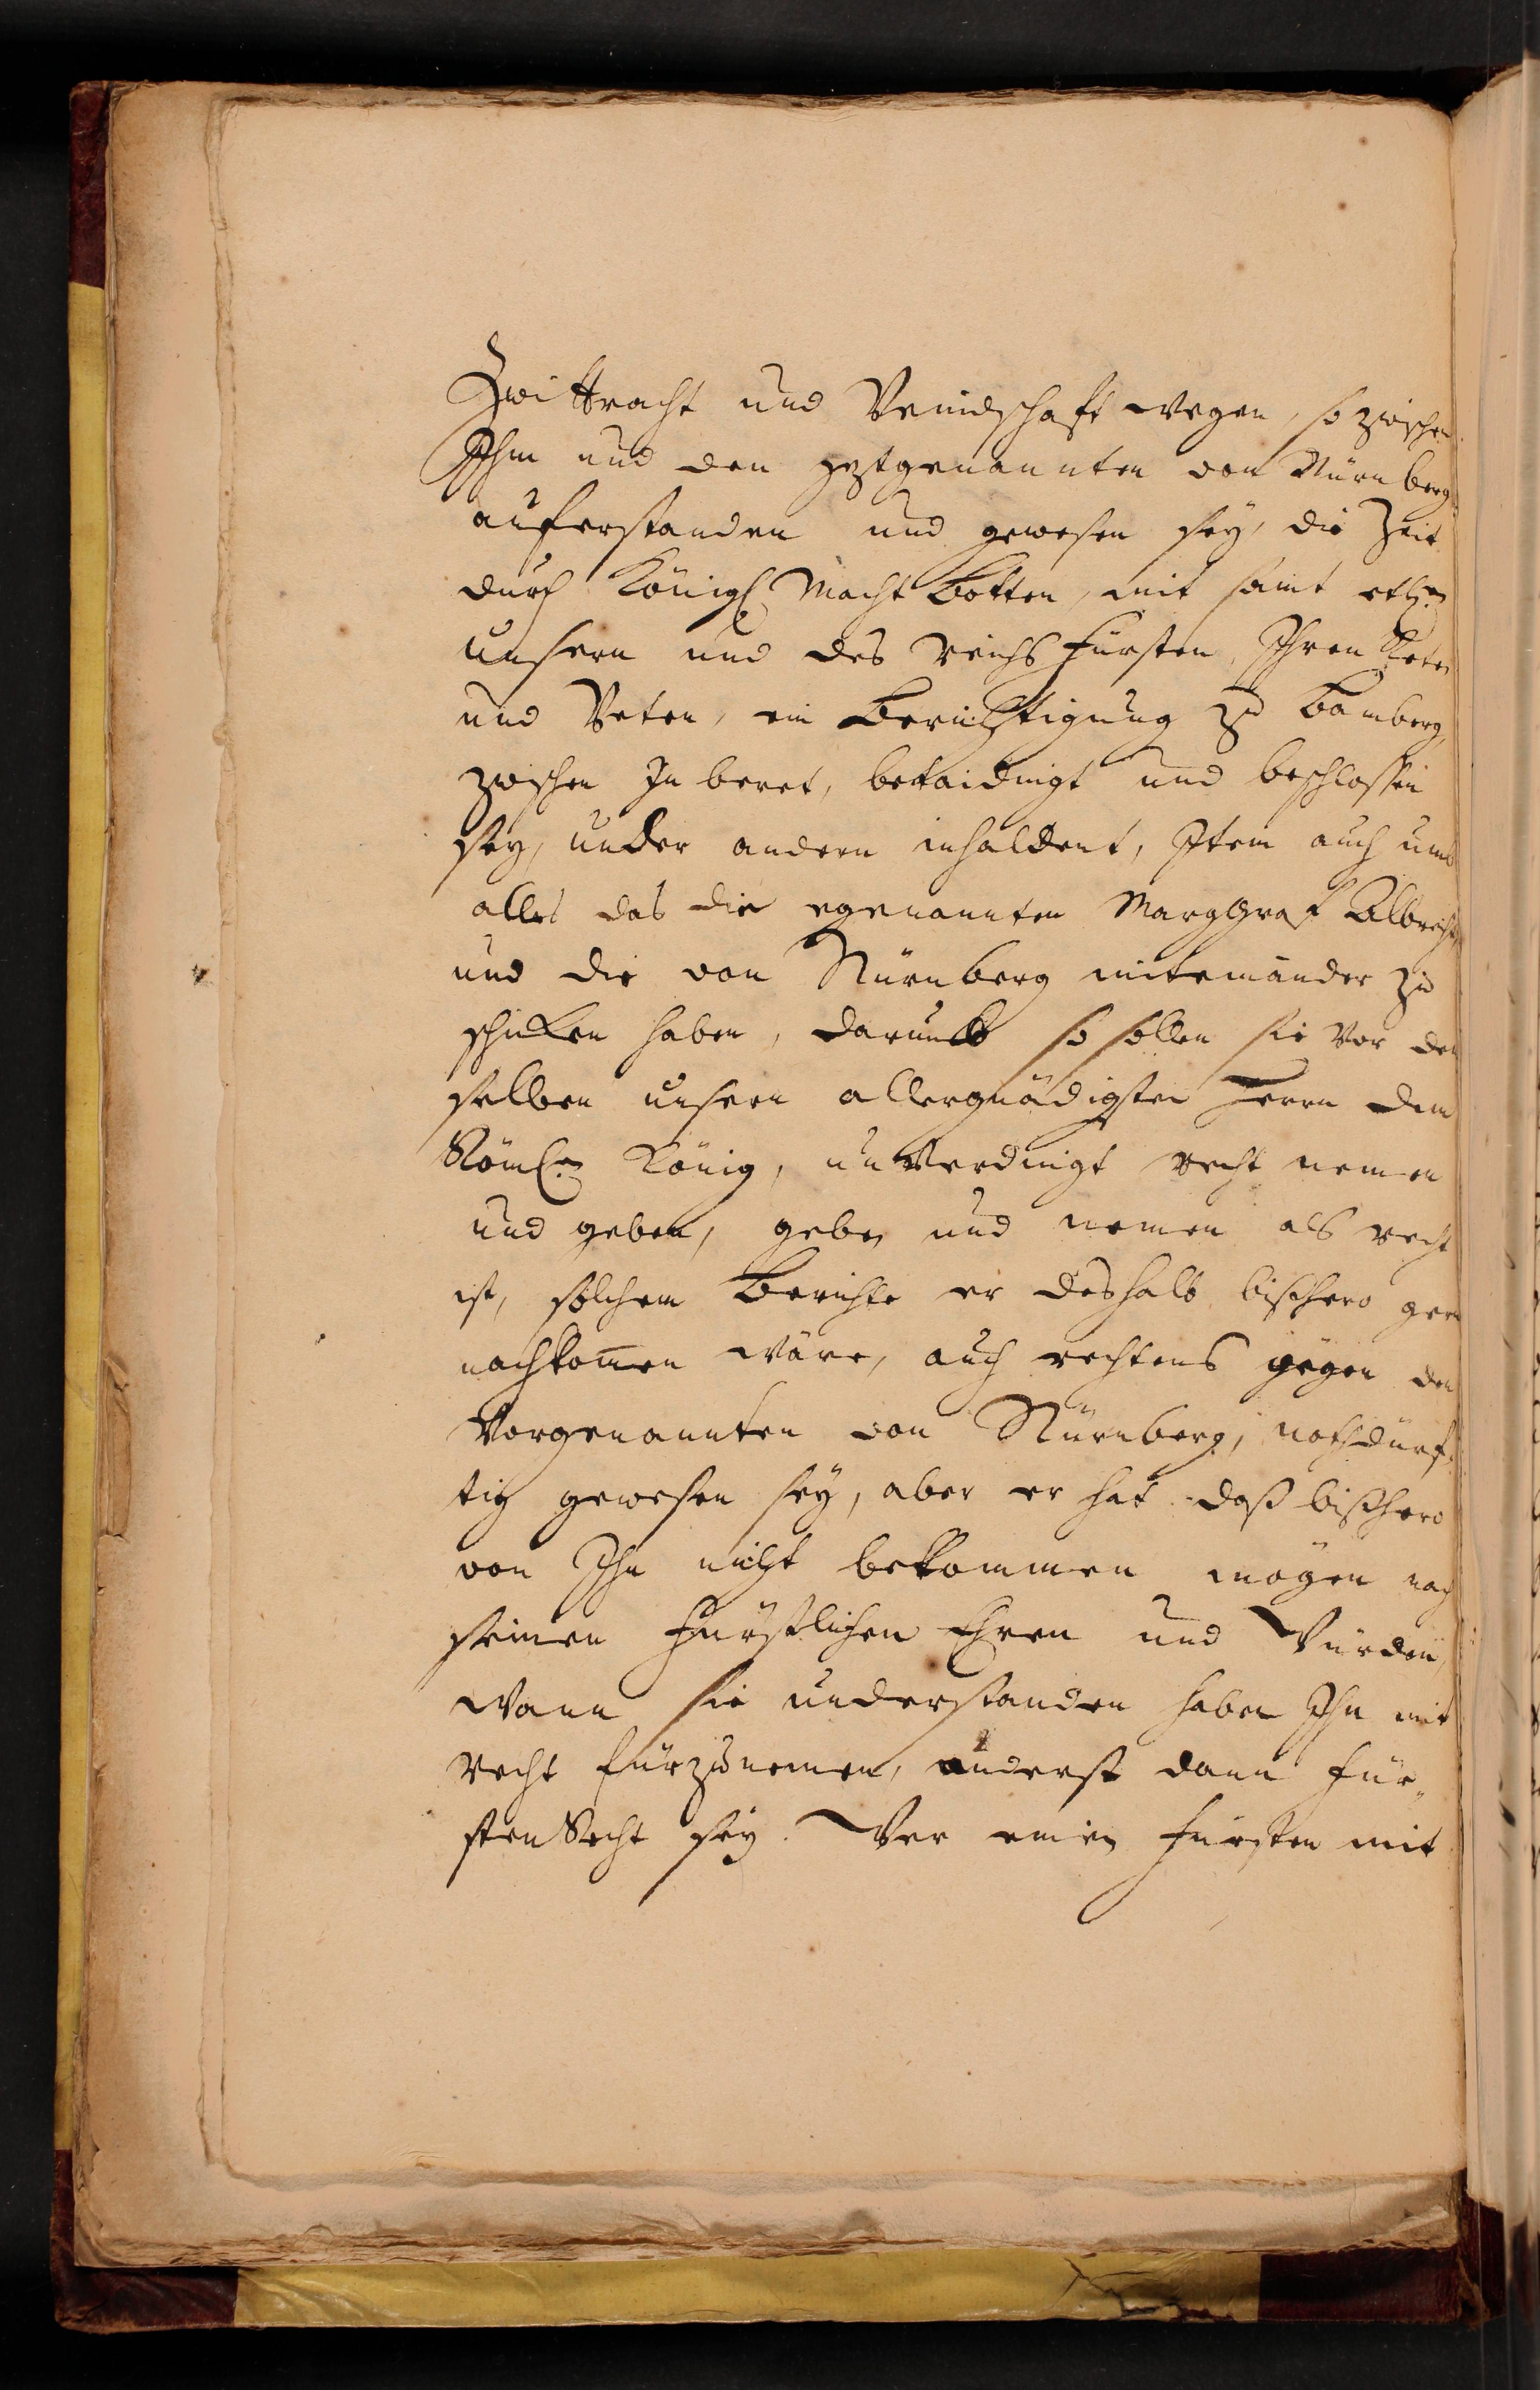 Zwittracht und Veindschafft wegen, so zwischen
Ihm und den jeztgenannten von Nürnberg
auferstanden und gewesen sey, die Zeit
durch Königl Macht Botten, mit samt etl.n
unsern und des reichs Fürsten, Ihren Reten
und Steten, ein Berichtigung zu Bamberg,
zwischen In beret, betaidingt und beschlossen
sey, under andern inhaldent, Item auch umb
alles das die egenannten Marggraf Albrecht
und die von Nürnberg miteinander zu
schicken haben, darumb so sollen sie vor dem
selben unsern allergnädigsten Herrn dem
Röml.n König, unverdingt recht nemen
und geben, geben und nemen als recht
ist, solchem Berichte er deshalb bishero gern
nachkomen wäre, auch rechtens gegen den
Vorgenannten von Nürnberg, nothdürf-
tig gewesen sey, aber er hat daß bißhero
von Ihn nicht bekommen mögen nach
seinen Fürstlichen Ehren und Würden,
Wann sie understanden haben Ihn mit
recht fürzunemen, anderst dann Für-
sten Recht sey. Wer einen Fürsten mit